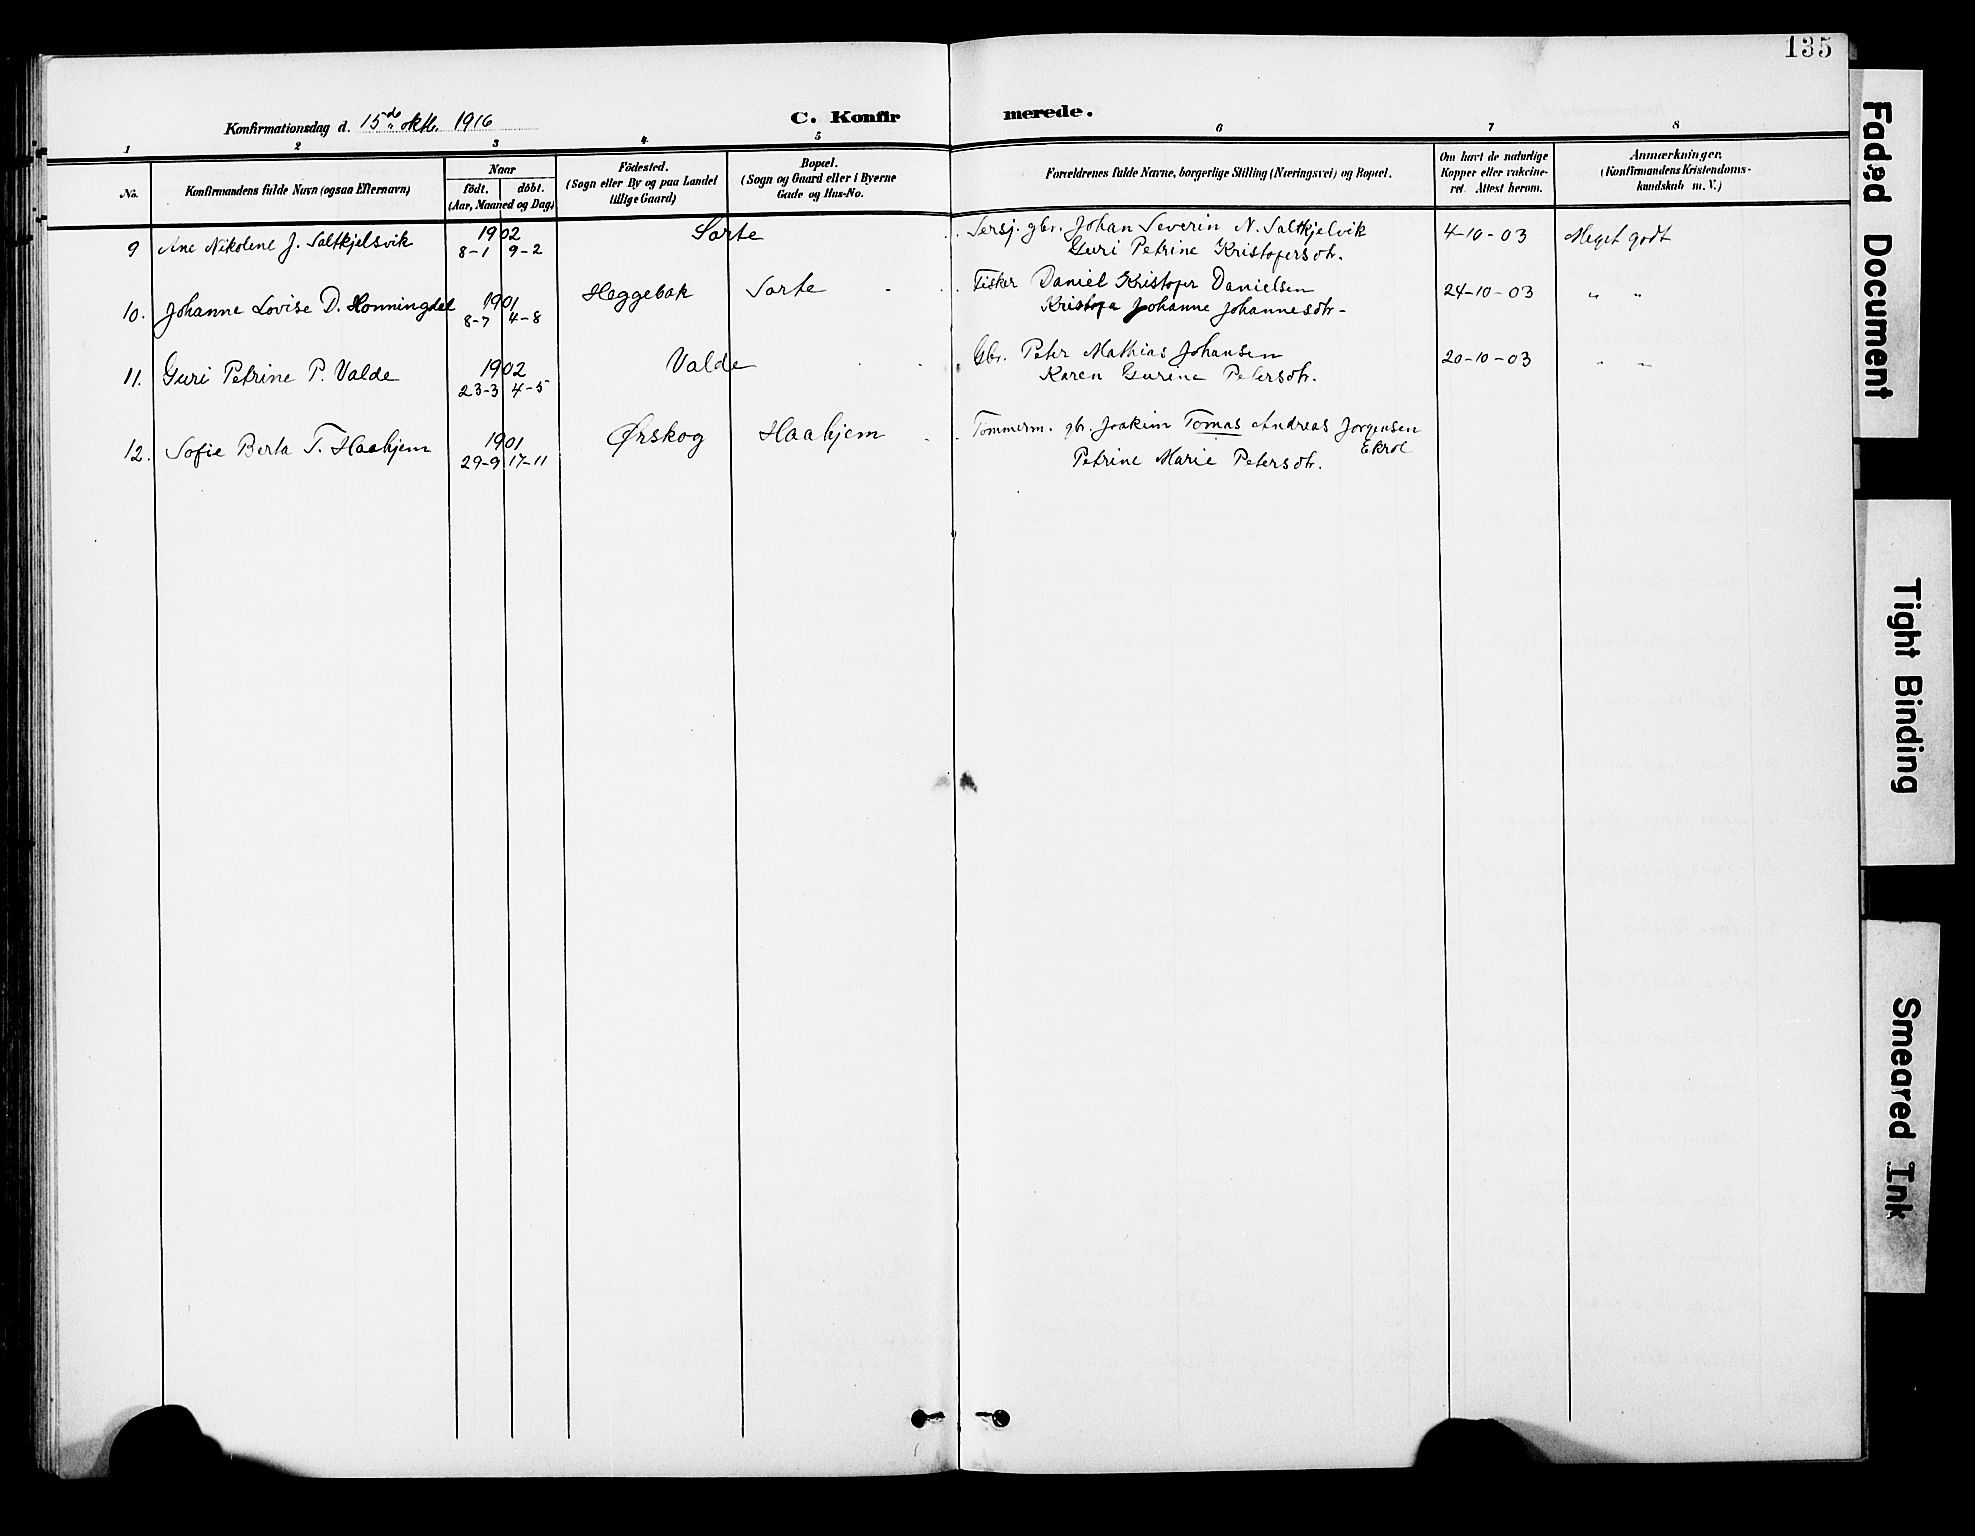 135
Konfirmationsdag d. 15de oktb. 1916 C. Konfir merede.
1 2 3 4 5 6 7 8
No. Konfirmandens fulde Navn (ogsaa Efternavn)
Naar
födt. döbt.
(Aar, Maaned og Dag)
Födested.
(Sogn eller By og paa Landet
tillige Gaard)
Bopæl.
(Sogn og Gaard eller i Byerne
Gade og Hus-No.
Forældrenes fulde Navne, borgerlige Stilling (Næringsvei) og Bopæl.
Om havt de naturlige
Kopper eller vakcine-
ret. Attest herom.
Anmærkninger.
(Konfirmandens Kristendoms-
kundskab m. V.)
9 Ane Nikolene J. Saltkjelsvik 1902 Sorte gbr. Johan Severin N. Saltkjelvik 4-10-03 Meget godt
8-1 9-2 Guri Petrine Kristofersdtr.
10. Johanne Lovise D. Honningdal 1901 Heggebak Sorte - Fisker Daniel Kristofer Danielsen 24-10-03 " "
8-7 4-8 Kristofa Johanne Johannesdtr-
11. Guri Petrine P. Valde 1902 Valde Gbr. Peter Mathias Johansen 20-10-03 " "
23-3 4-5 Karen Gurine Petersdtr.
12. Sofie Berta T. Haahjem 1901 Ørskog Haahjem Tømmerm. gbr. Joakim Tomas Andreas Jørgensen
29-9 17-11 Ekrol
Petrine Marie Petersdtr.
Faded Document
Tight Binding
Smeared Ink